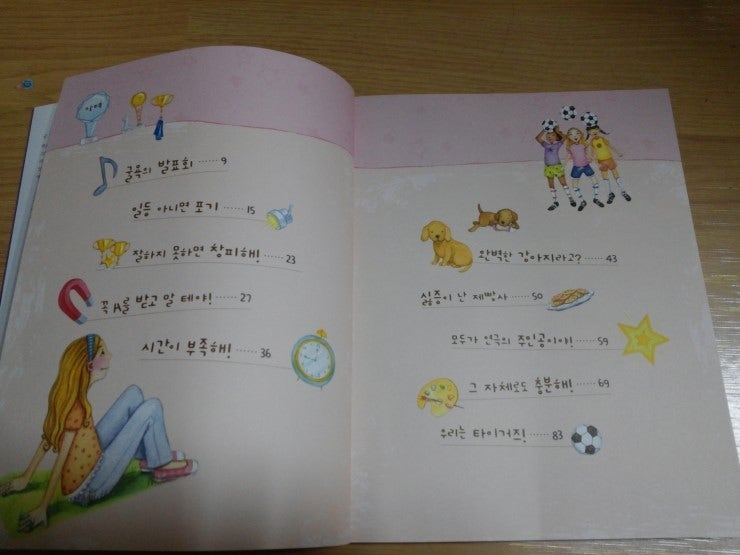 굴욕의 발표회 ······ 9
일등 아니면 포기 ······ 15
잘하지 못하면 창피해! ······ 23
꼭 A를 받고 말 테야! ······ 27
시간이 부족해! ······ 36
완벽한 강아지라고? ······ 43
싫증이 난 제빵사 ······ 50
모두가 연극의 주인공이야! ······ 59
그 자체로도 충분해! ······ 69
우리는 타이거즈! ······ 83